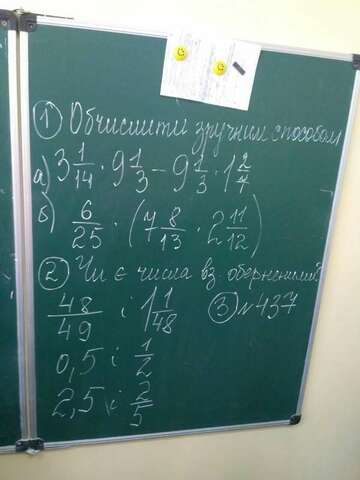 1) Обчислити зручним способом
а) 3 1/14 · 9 1/3 - 9 1/3 · 1 2/7
б) 6/25 · (7 8/13 · 2 11/12)
2) Чи є числа вз. оберненими?
48/49 і 1 1/48
3) № 437
0,5 і 1/2
2,5 і 2/5